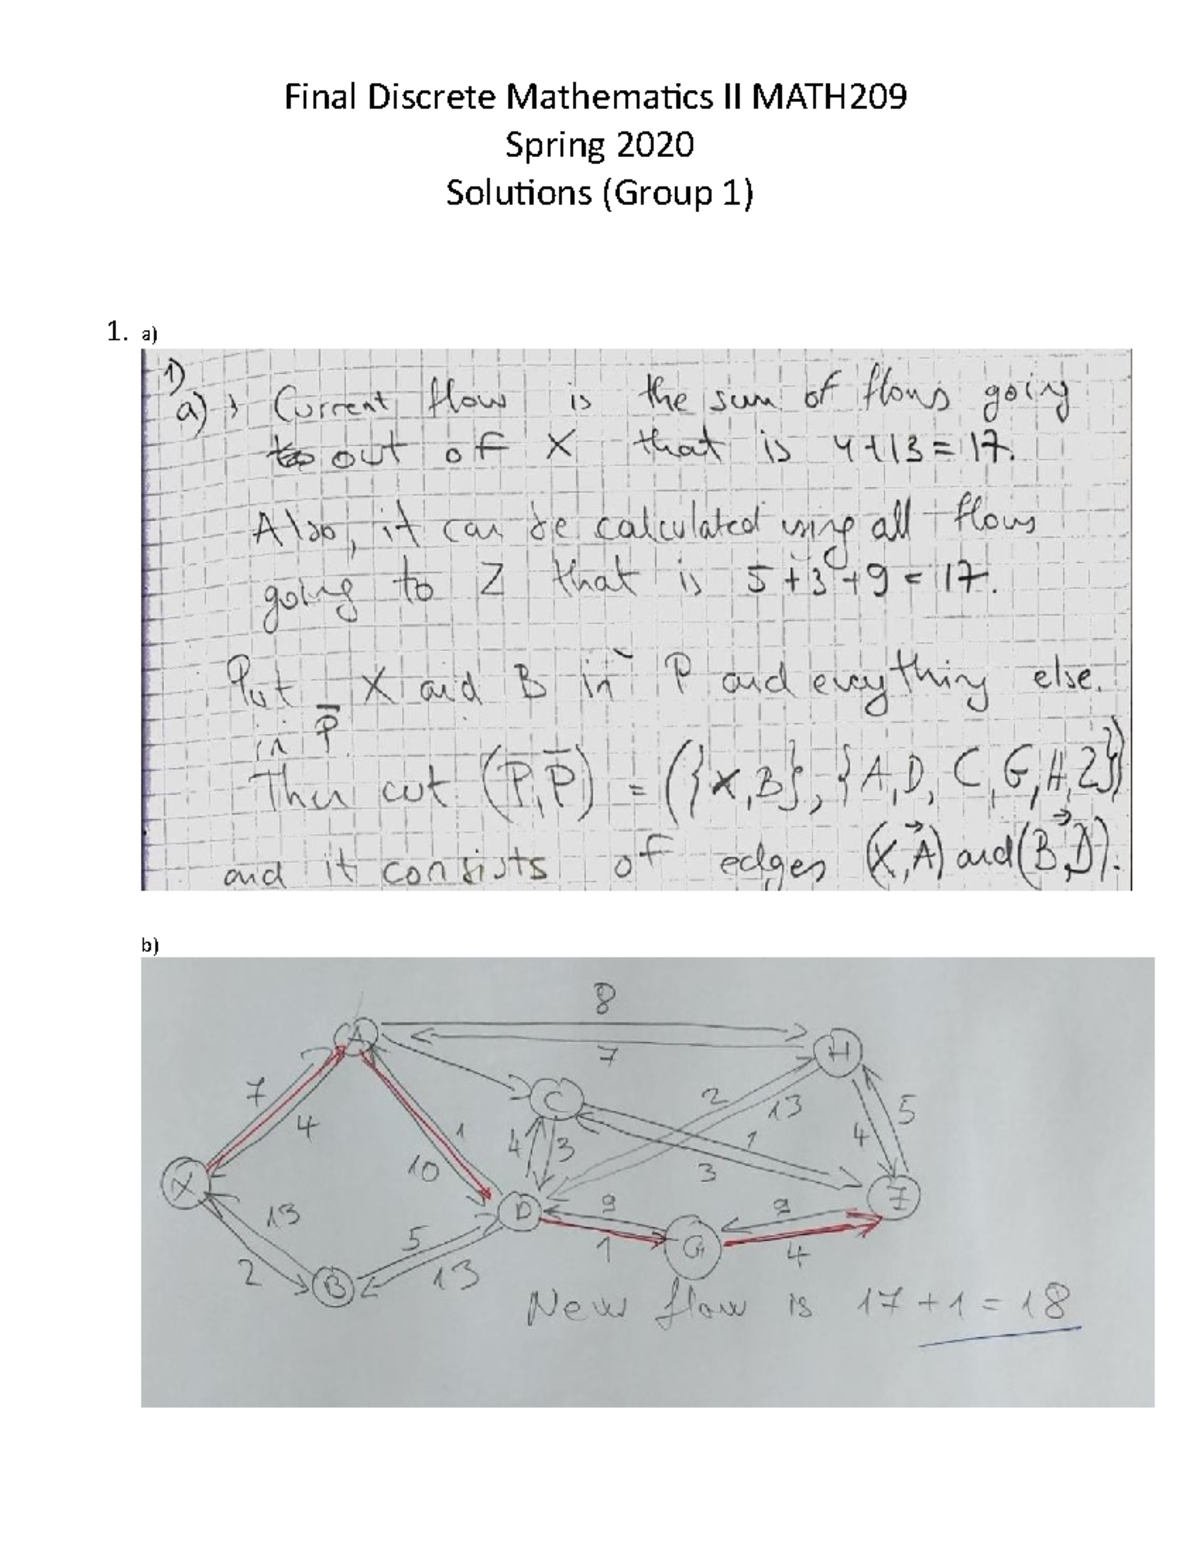 Final Discrete Mathematics II MATH209
Spring 2020
Solutions (Group 1)
1. a)
1)
a) Current flow is the sum of flows going
out of X that is 4+13=17.
Also, it can be calculated using all flows
going to Z that is 5+3+9=17.
Put X and B in P and everything else
in P̅.
Then cut (P,P̅) = ({X,B},{A,D,C,G,H,Z})
and it consists of edges (X,A) and (B,D).
b)
8
A
7
H
7
4
C
2
13
5
1
4
3
1
4
10
3
X
Z
13
D
9
9
5
1
G
4
2
B
13
New flow is 17+1=18